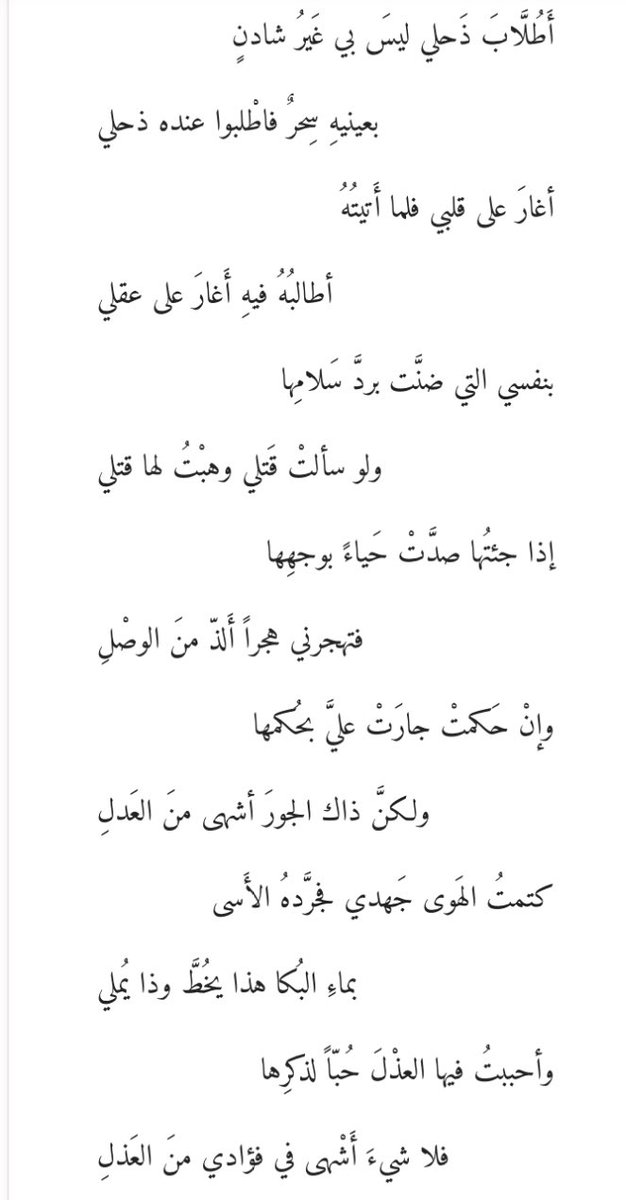 أَطُلَّابَ ذَحلي ليسَ بي غَيرُ شادنٍ
بعينيهِ سِحرٌ فاطْلبوا عنده ذحلي
أغارَ على قلبي فلما أَتيتُهُ
أطالبُهُ فيهِ أَغارَ على عقلي
بنفسي التي ضنَّت بردَّ سَلامِها
ولو سألتْ قَتلي وهبْتُ لها قتلي
إذا جئتُها صدَّتْ حَياءً بوجهِها
فتهجرني هجراً أَلذّ منَ الوصْلِ
وإنْ حَكمتْ جارَتْ عليَّ بحُكمها
ولكنَّ ذاك الجورَ أشهى منَ العَدلِ
كتمتُ الهَوى جَهدي فجرَّدهُ الأَسى
بماءِ البُكا هذا يخُطَّ وذا يُملي
وأحببتُ فيها العذْلَ حُبّاً لذكرِها
فلا شيءَ أَشْهى في فؤادي منَ العَذلِ